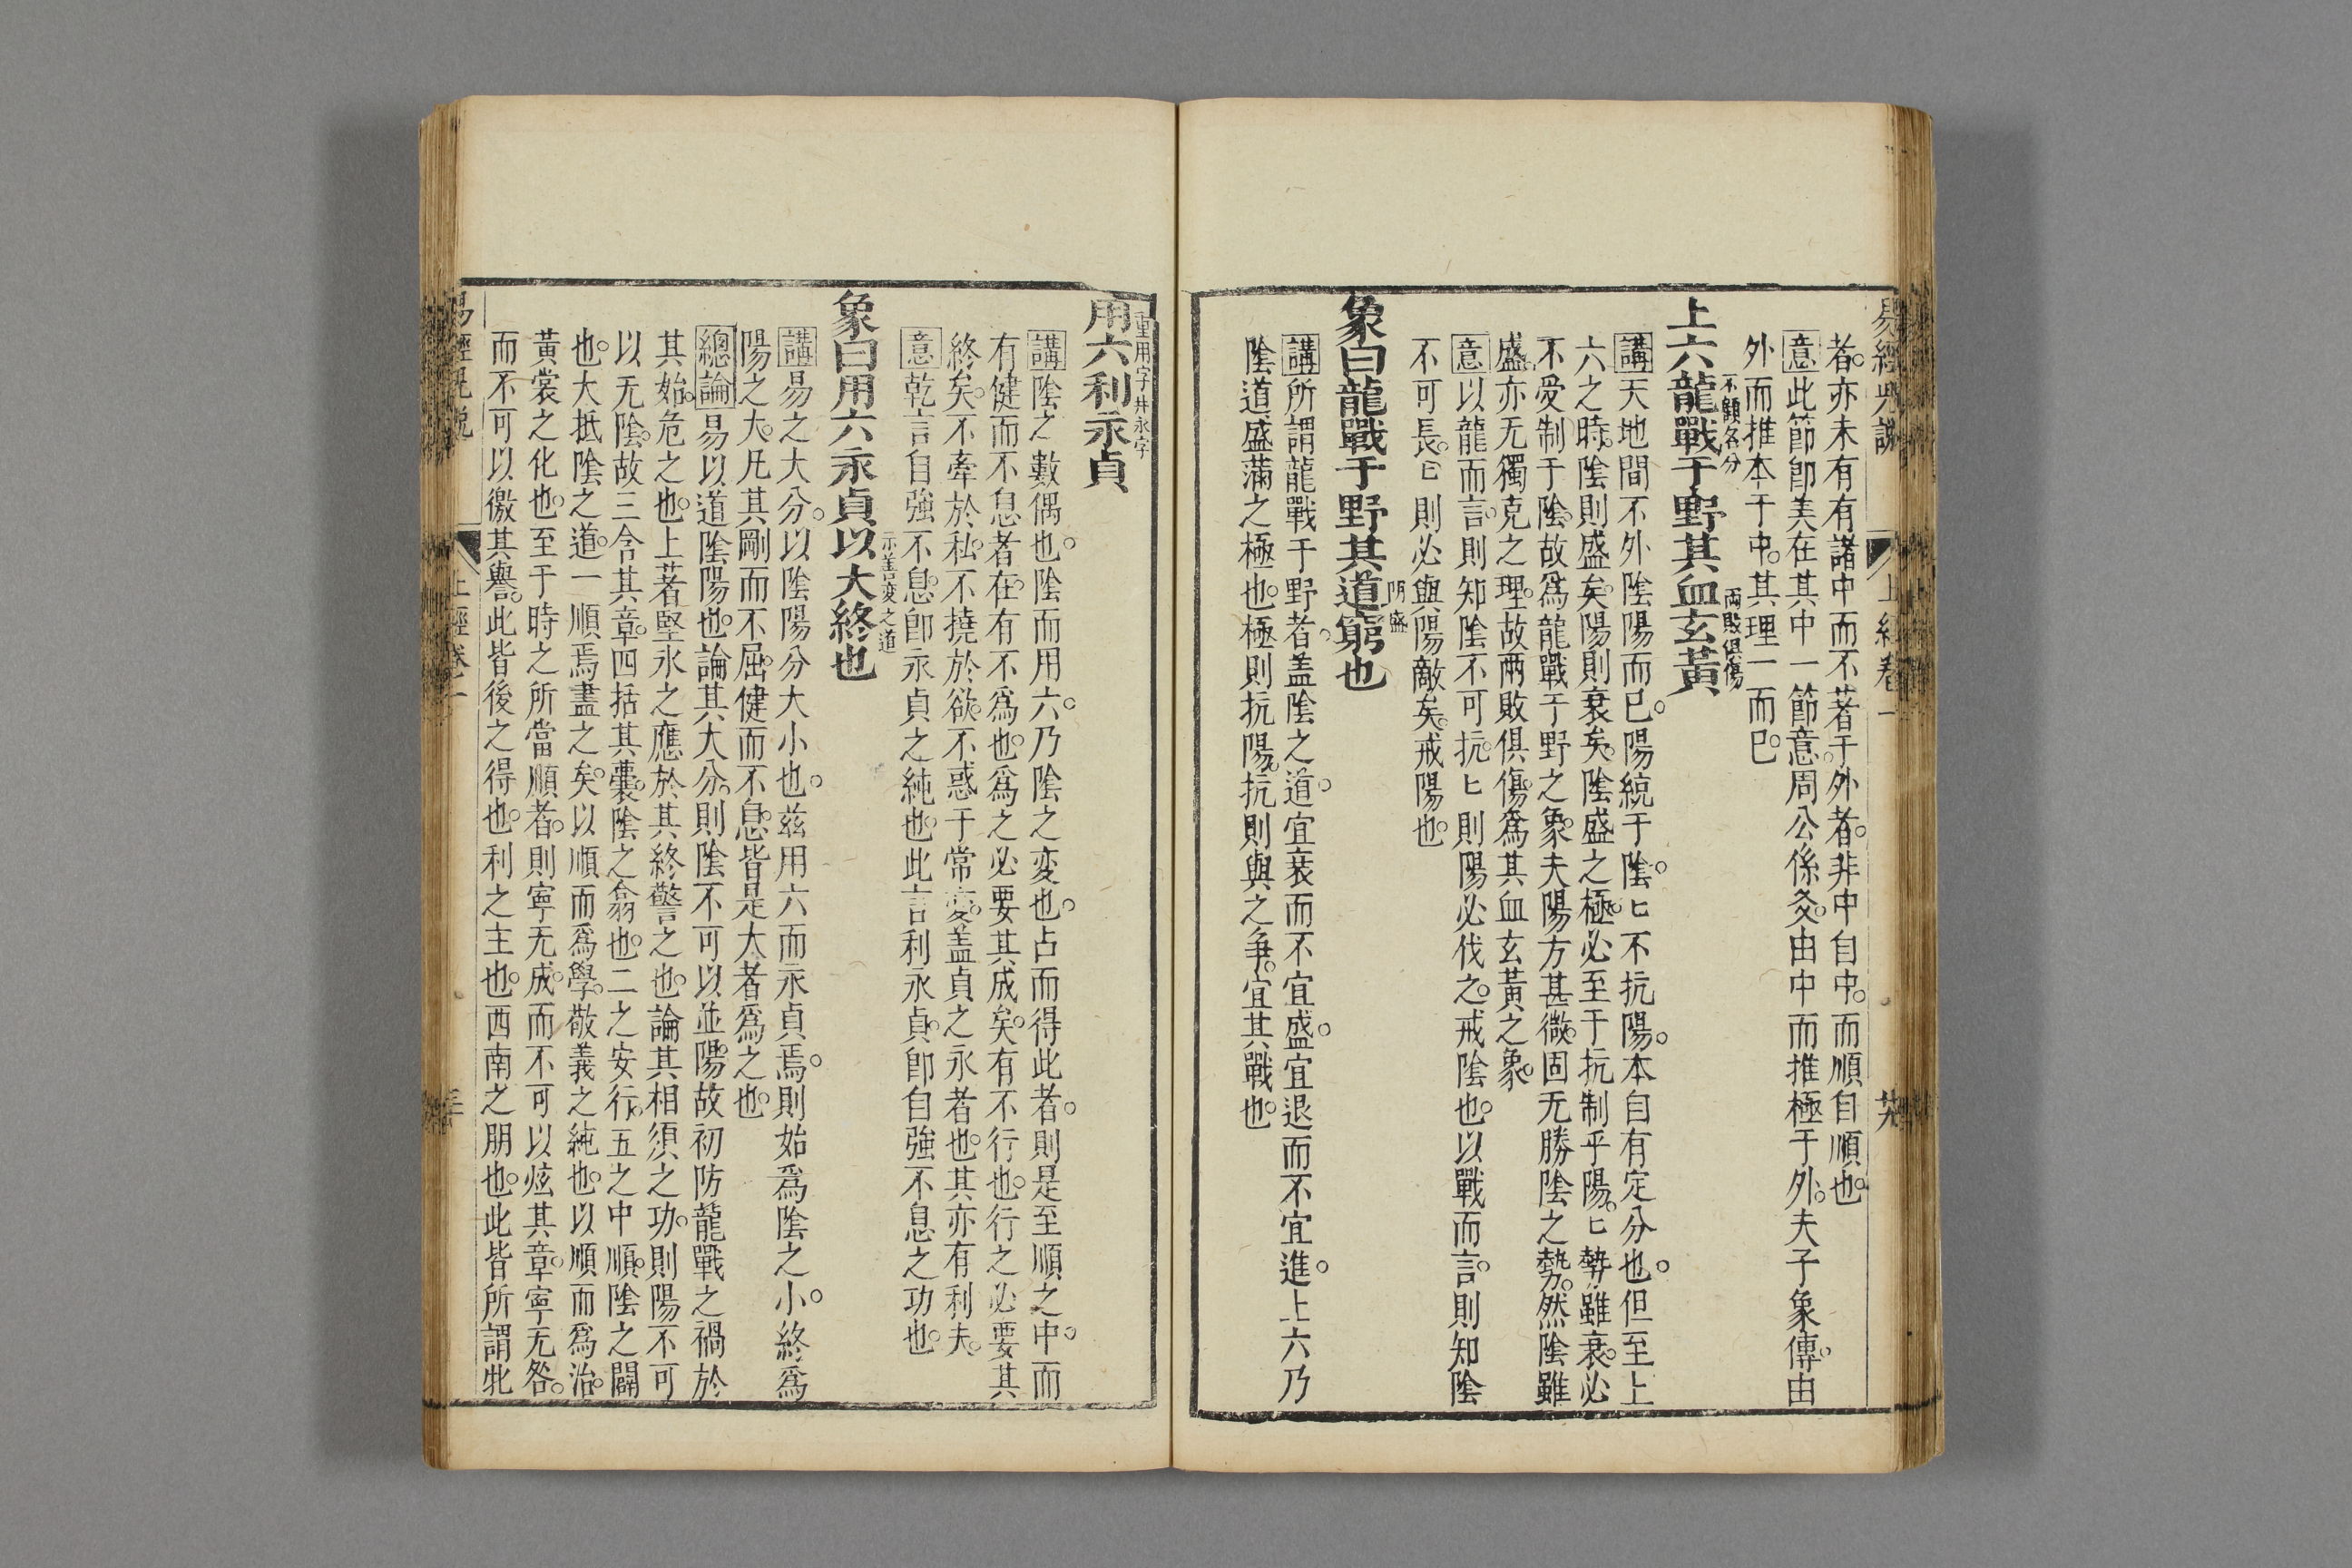 易經兒說
上經卷一
者。亦未有有諸中而不著于外者。非中自中。而順自順也。
意此節卽美在其中一節意。周公係爻。由中而推極于外。夫子象傳。由
外而推本于中。其理一而已。
上六龍戰于野其血玄黃
不顧名分
兩敗俱傷
講天地間不外陰陽而已。陽統于陰。匕不抗陽。本自有定分也。但至上
六之時。陰則盛矣。陽則衰矣。陰盛之極。必至于抗制乎陽。匕勢雖衰。必
不受制于陰。故爲龍戰于野之象。夫陽方甚微。固无勝陰之勢。然陰雖
盛。亦无獨克之理。故兩敗俱傷。爲其血玄黃之象。
意以龍而言。則知陰不可抗。匕則陽必伐之。戒陰也。以戰而言。則知陰
不可長。匕則必與陽敵矣。戒陽也。
象曰龍戰于野其道窮也
陰盛
講所謂龍戰于野者。盖陰之道。宜衰而不宜盛。宜退而不宜進。上六乃
陰道盛滿之極也。極則抗陽。抗則與之爭。宜其戰也。
重用字并永字
用六利永貞
講陰之數偶也。陰而用六。乃陰之変也。占而得此者。則是至順之中。而
有健而不息者在。有不爲也。爲之必要其成矣。有不行也。行之必要其
終矣。不牽於私。不撓於欲。不惑于常變。盖貞之永者也。其亦有利夫。
意乾言自強不息。卽永貞之純也。此言利永貞。卽自強不息之功也。
象曰用六永貞以大終也
示善變之道
講易之大分。以陰陽分大小也。茲用六而永貞焉。則始爲陰之小。終爲
陽之大。凡其剛而不屈。健而不息。皆是大者爲之也。
總論易以道陰陽也。論其大分。則陰不可以並陽。故初防龍戰之禍於
其始。危之也。上著堅氷之應於其終。警之也。論其相須之功。則陽不可
以无陰。故三含其章。四括其囊。陰之翕也。二之安行。五之中順。陰之闢
也。大抵陰之道。一順焉盡之矣。以順而爲學。敬義之純也。以順而爲治。
黃裳之化也。至于時之所當順者。則寧无成。而不可以炫其章。寧无咎。
而不可以徼其譽。此皆後之得也。利之主也。西南之朋也。此皆所謂牝